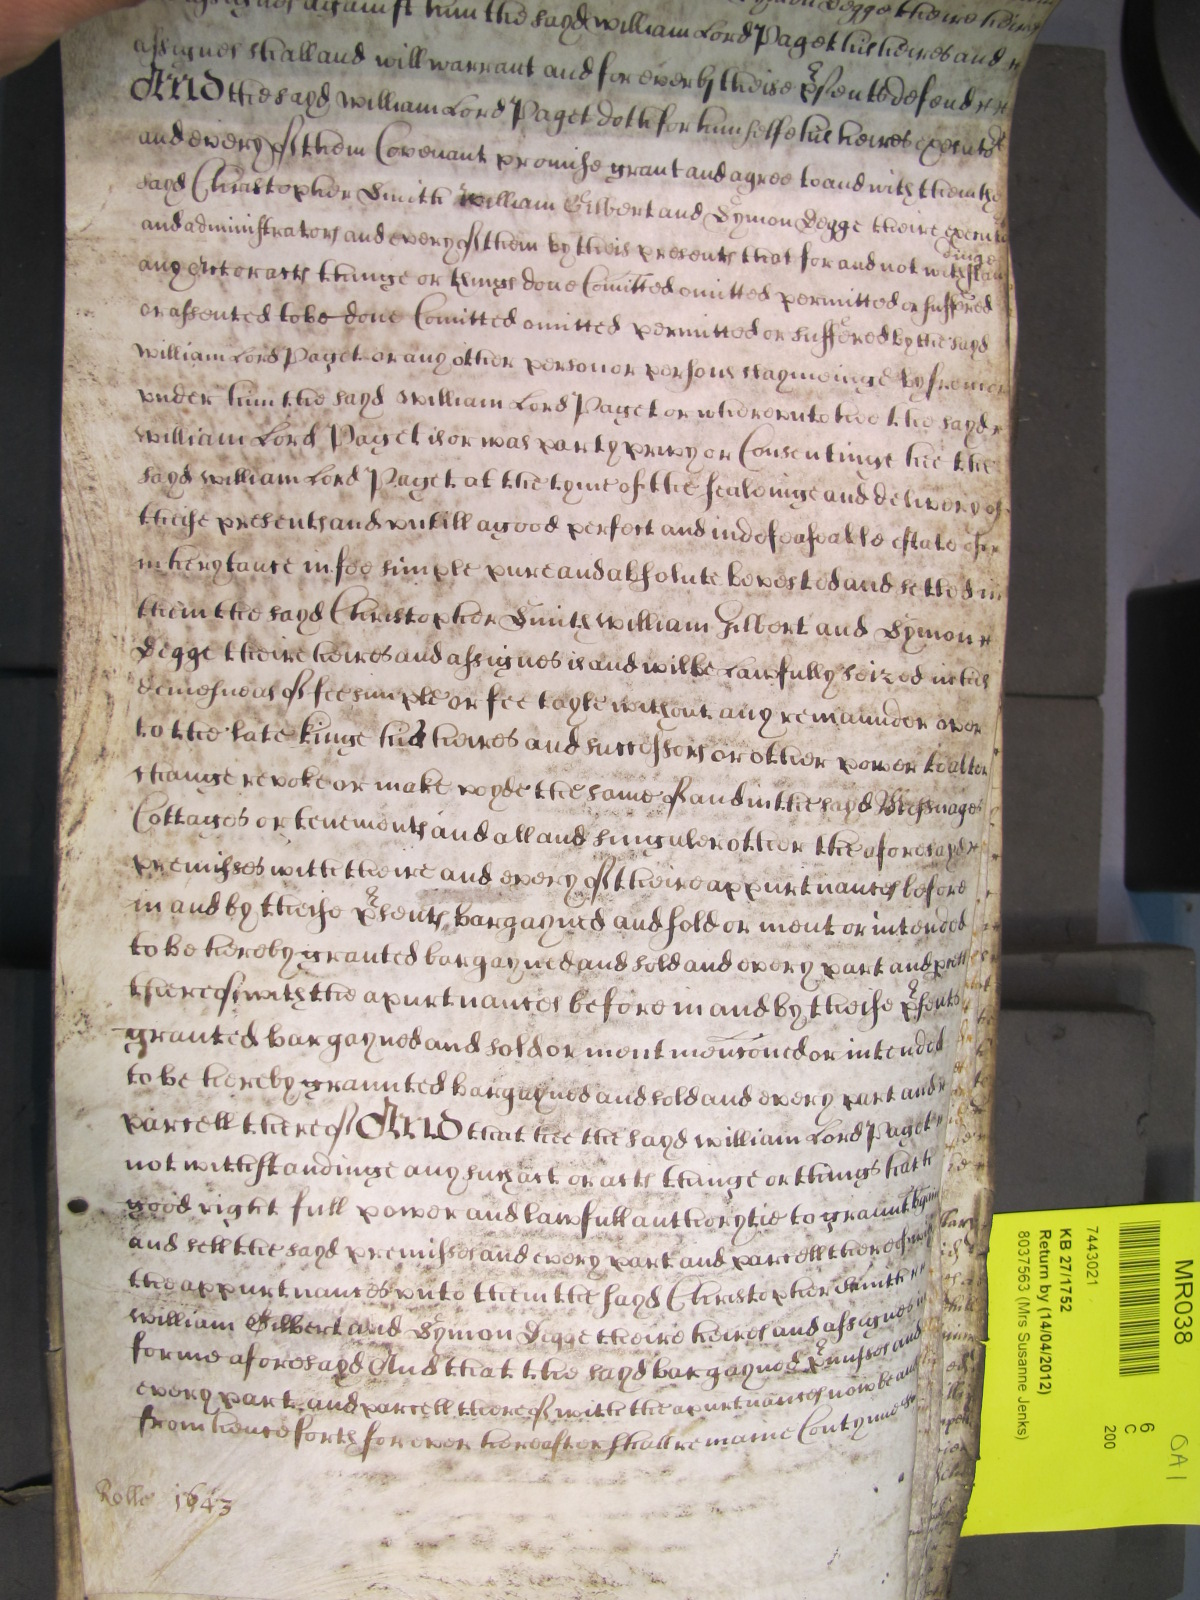 against him the sayd William Lord Paget his heires and
assignes shall and will warrant and for ever by theise psents defend
And the sayd William Lord Paget doth for himselfe his heires executors
and every of them Covenant promise grant and agree to and with them the
sayd Christopher Smith William Gilbert and Symon Degge theire
and administrators and every of them by theis presents that for and not withstan
dinge
any act or acts thinge or things done Comitted omitted permitted or suffered
or assented to be done Comitted omitted permitted or suffered by the sayd
William Lord Paget or any other person or persons claymeinge by from or
under him the sayd William Lord Paget or whereunto hee the sayd
William Lord Paget is or was party privy or Consentinge hee the
sayd William Lord Paget at the tyme of the sealeinge and delivery of
theise presents and untill a good perfect and indefeasable estate of
inherytance in fee simple pure and absolute be vested and setled in
them the sayd Christopher Smith William Gilbert and Symon
Degge theire heires and assignes is and wilbe lawfully seized in his
demesne as of fee simple or fee tayle without any remainder over
to the late kinge his heires and successors or other power to alter
change revoke or make voyde the same of and in the sayd Messuages
Cottages or tenements and all and singuler other the aforesayd
premisses with theire and every of theire appurtnances before
in and by theise psents bargayned and sold or ment or intended
to be hereby granted bargayned and sold and every part and pcell
thereof with the apurtnances before in and by theise psents
granted bargayned and sold or ment mencioned or intended
to be hereby graunted bargayned and sold and every part and
parcell thereof And that hee the sayd William Lord Paget
not withstandinge any such act or acts thinge or things hath
good right full power and lawfull authorytie to graunt bargain
and sell the sayd premisses and every part and parcell thereof with
the appurtnances unto them the sayd Christopher Smith
William Gilbert and Symon Degge theire heires and assignes in
forme aforesayd And that the sayd bargayned pmisses and
every part and parcell thereof with the apurtnances now be and
from henceforth for ever hereafter shall remaine Contynue
Rollo 1643
MR038
7443021
KB 27/1752
Return by (14/04/2012)
8037563 (Mrs Susanne Jenks)
6
C
200
OA1